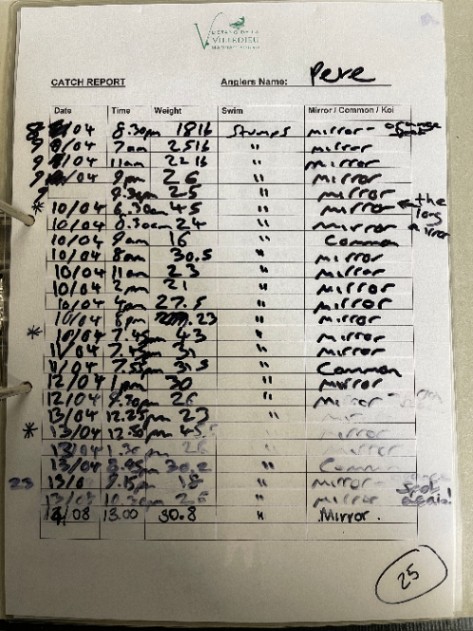 L'ETANG DE LA
VILLEDIEU
CATCH REPORT Anglers Name: Pete
Date Time Weight Swim Mirror / Common / Koi
8/04 8.30pm 18lb Stumps mirror - orange spot
9/04 7am 25lb " mirror
9/04 11am 22lb " mirror
9/04 9pm 26 " mirror
9 9.30pm 25 " mirror
* 10/04 6.30am 45 " mirror ← the long mirror
10/04 8.30am 24 " mirror
10/04 9am 16 " Common
10/04 8am 30.5 " mirror
10/04 11am 23 " mirror
10/04 2pm 21 " mirror
10/04 4pm 27.5 " mirror
10/04 6pm 23 " mirror
* 10/04 7.45pm 43 " mirror
11/04 7.45pm 31 " mirror
11/04 7.55pm 31.5 " Common
12/04 1pm 30 " mirror
12/04 9.30pm 26 " mirror -
13/04 12.25pm 23 " mirror
* 13/04 12.50pm 45.5 " mirror
13/04 1.30pm 26 " mirror
13/04 8.45pm 30.2 " Common
23 13/0 9.15pm 18 " mirror - spot again!
13/08 10.30pm 26 " mirror
14/08 13.00 30.8 " Mirror.
25